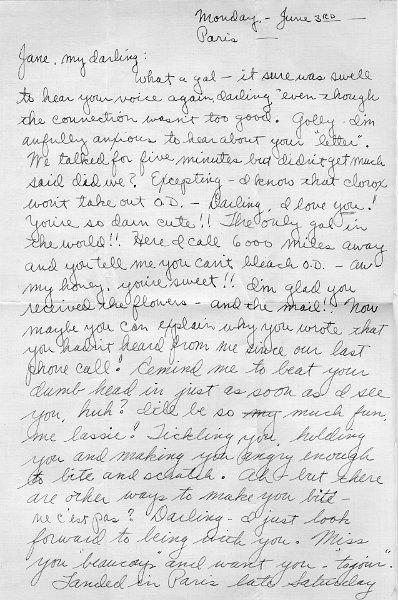 Monday. - June 3RD -
Paris
Jane, my darling:
What a gal - it sure was swell
to hear your voice again, darling even though
the connection wasn't too good. Golly - I'm
awfully anxious to hear about your "letter".
We talked for five minutes but didn't get much
said did we? Excepting - I know that clorox
won't take out O.D. - Darling, I love you!
You're so darn cute!! The only gal in
the world!! Here I call 6000 miles away
and you tell me you can't bleach O.D. - aw
my honey, you're sweet!! I'm glad you
received the flowers - and the mail!! Now
maybe you can explain why you wrote that
you hadn't heard from me since our last
phone call! Remind me to beat your
dumb head in just as soon as I see
you, huh? It'll be so my much fun,
me lassie! Tickling you, holding
you and making you angry enough
to bite and scratch. Ah - but there
are other ways to make you bite -
ne c'est pas? Darling - I just look
forward to being with you. Miss
you "beaucoup" and want you - "toujour".
Landed in Paris late Saturday